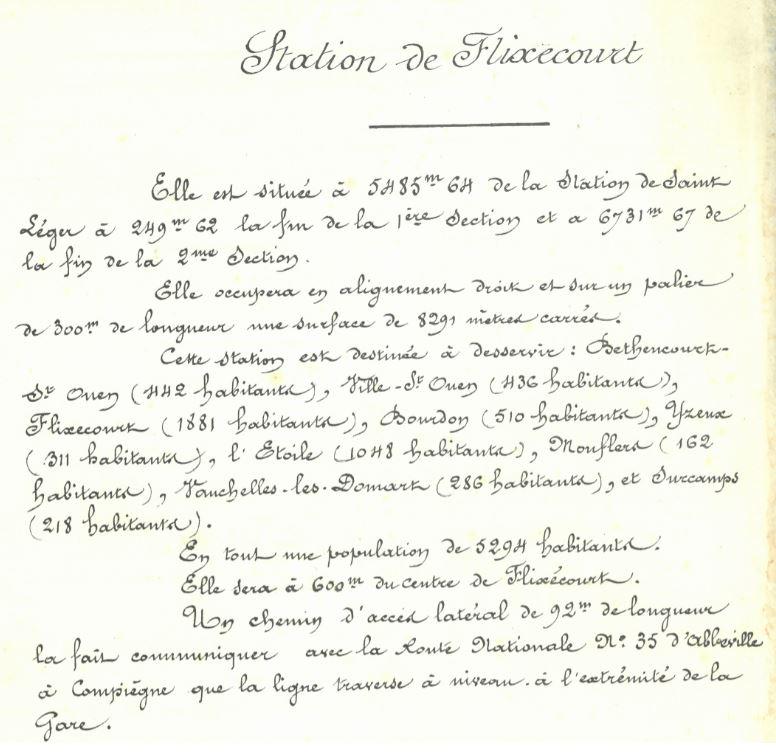 Station de Flixecourt
Elle est située à 5485m 64 de la Station de Saint
Léger à 249m 62 la fin de la 1ère Section et a 6731m 67 de
la fin de la 2me Section.
Elle occupera en alignement droit et sur un palier
de 300m de longueur une surface de 8291 mètres carrés.
Cette station est destinée à desservir : Bethencourt-
St Ouen (442 habitants), Ville-St Ouen (436 habitants),
Flixecourt (1881 habitants), Bourdon (510 habitants), Yzeux
(311 habitants), l'Etoile (1048 habitants), Mouflers (162
habitants), Vauchelles-les-Domart (286 habitants), et Surcamps
(218 habitants).
En tout une population de 5294 habitants.
Elle sera à 600m du centre de Flixécourt.
Un chemin d'accès latéral de 92m de longueur
la fait communiquer avec la Route Nationale No. 35 d'Abbeville
à Compiégne que la ligne traverse à niveau. à l'extrémité de la
Gare.